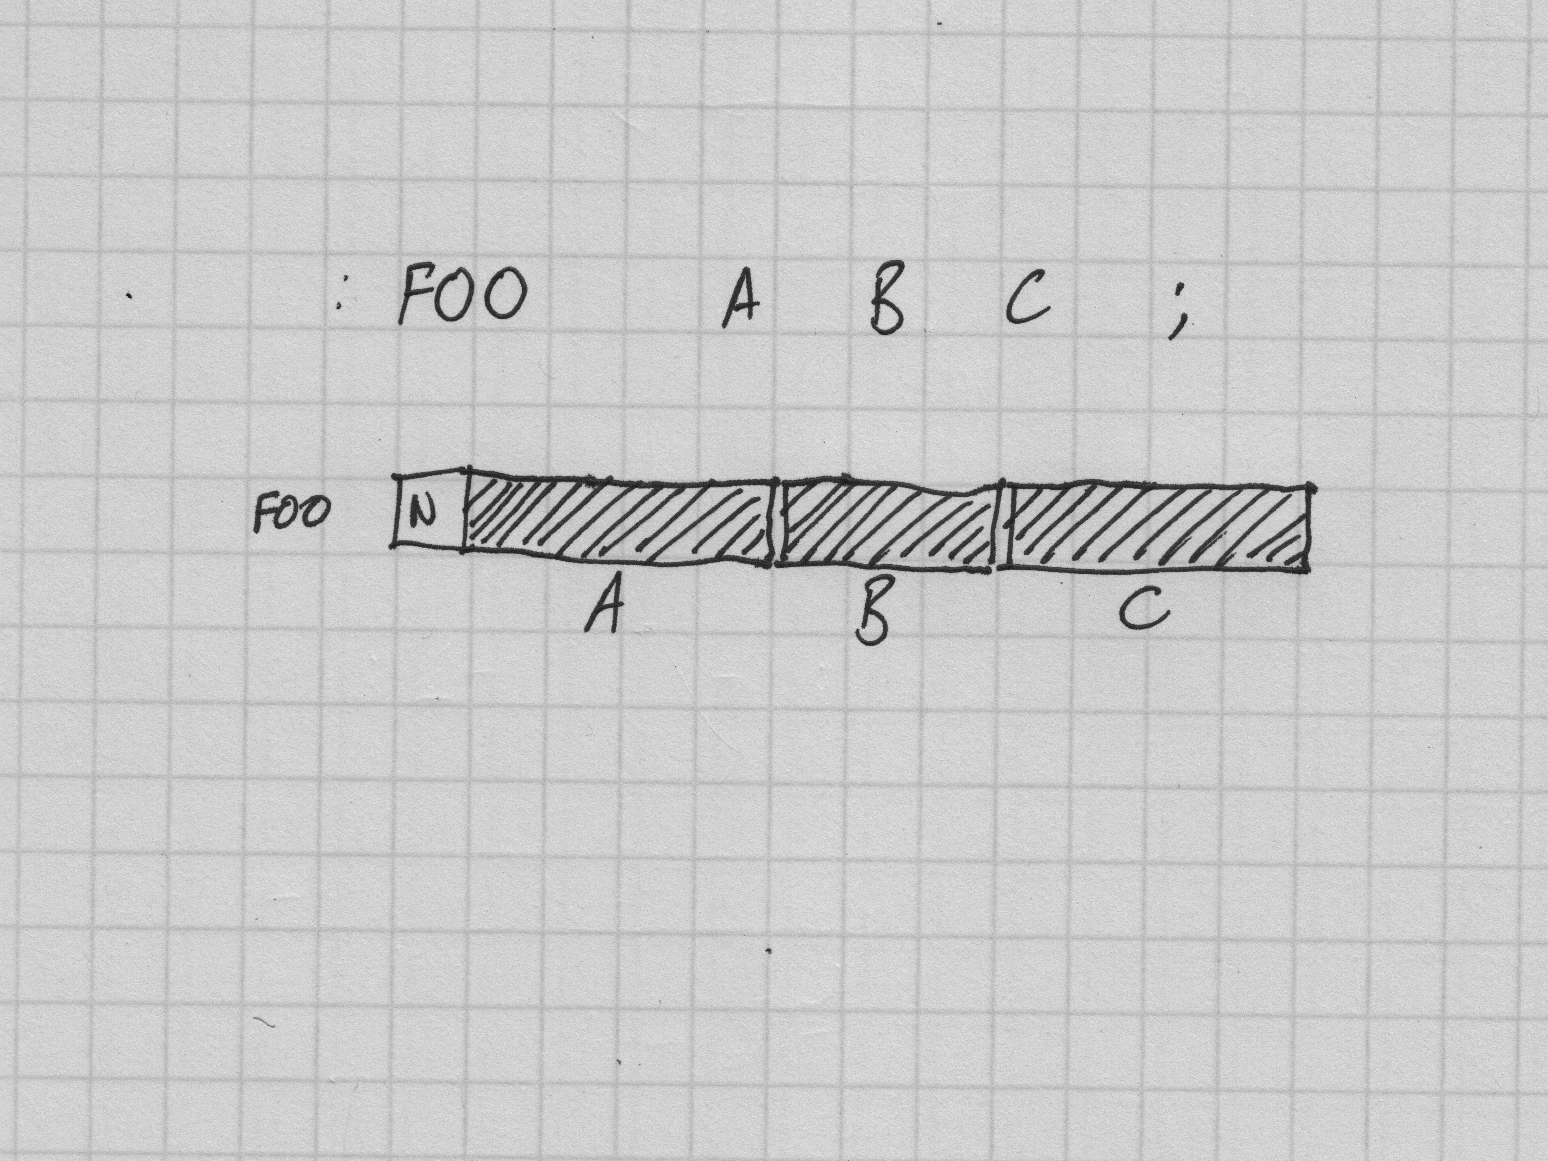 : FOO A B C ;
FOO N
A B C